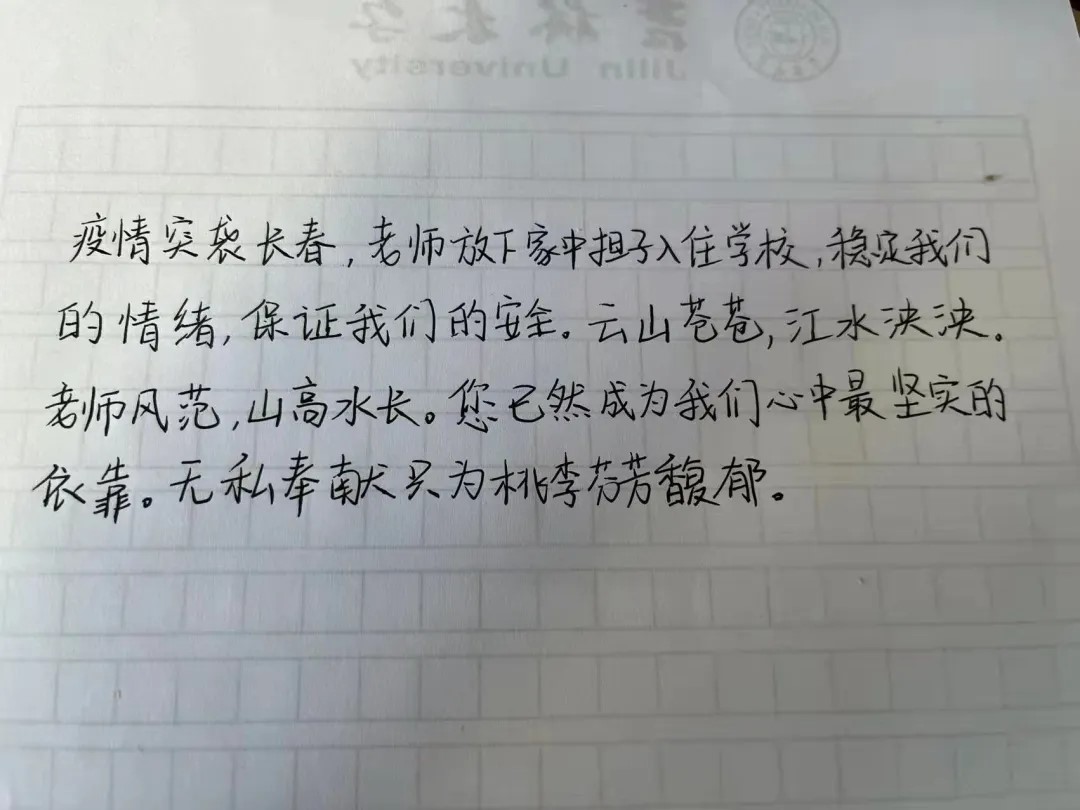 吉林大学
Jilin University
疫情突袭长春,老师放下家中担子入住学校,稳定我们
的情绪,保证我们的安全。云山苍苍,江水泱泱.
老师风范,山高水长。您已然成为我们心中最坚实的
依靠。无私奉献只为桃李芬芳馥郁。